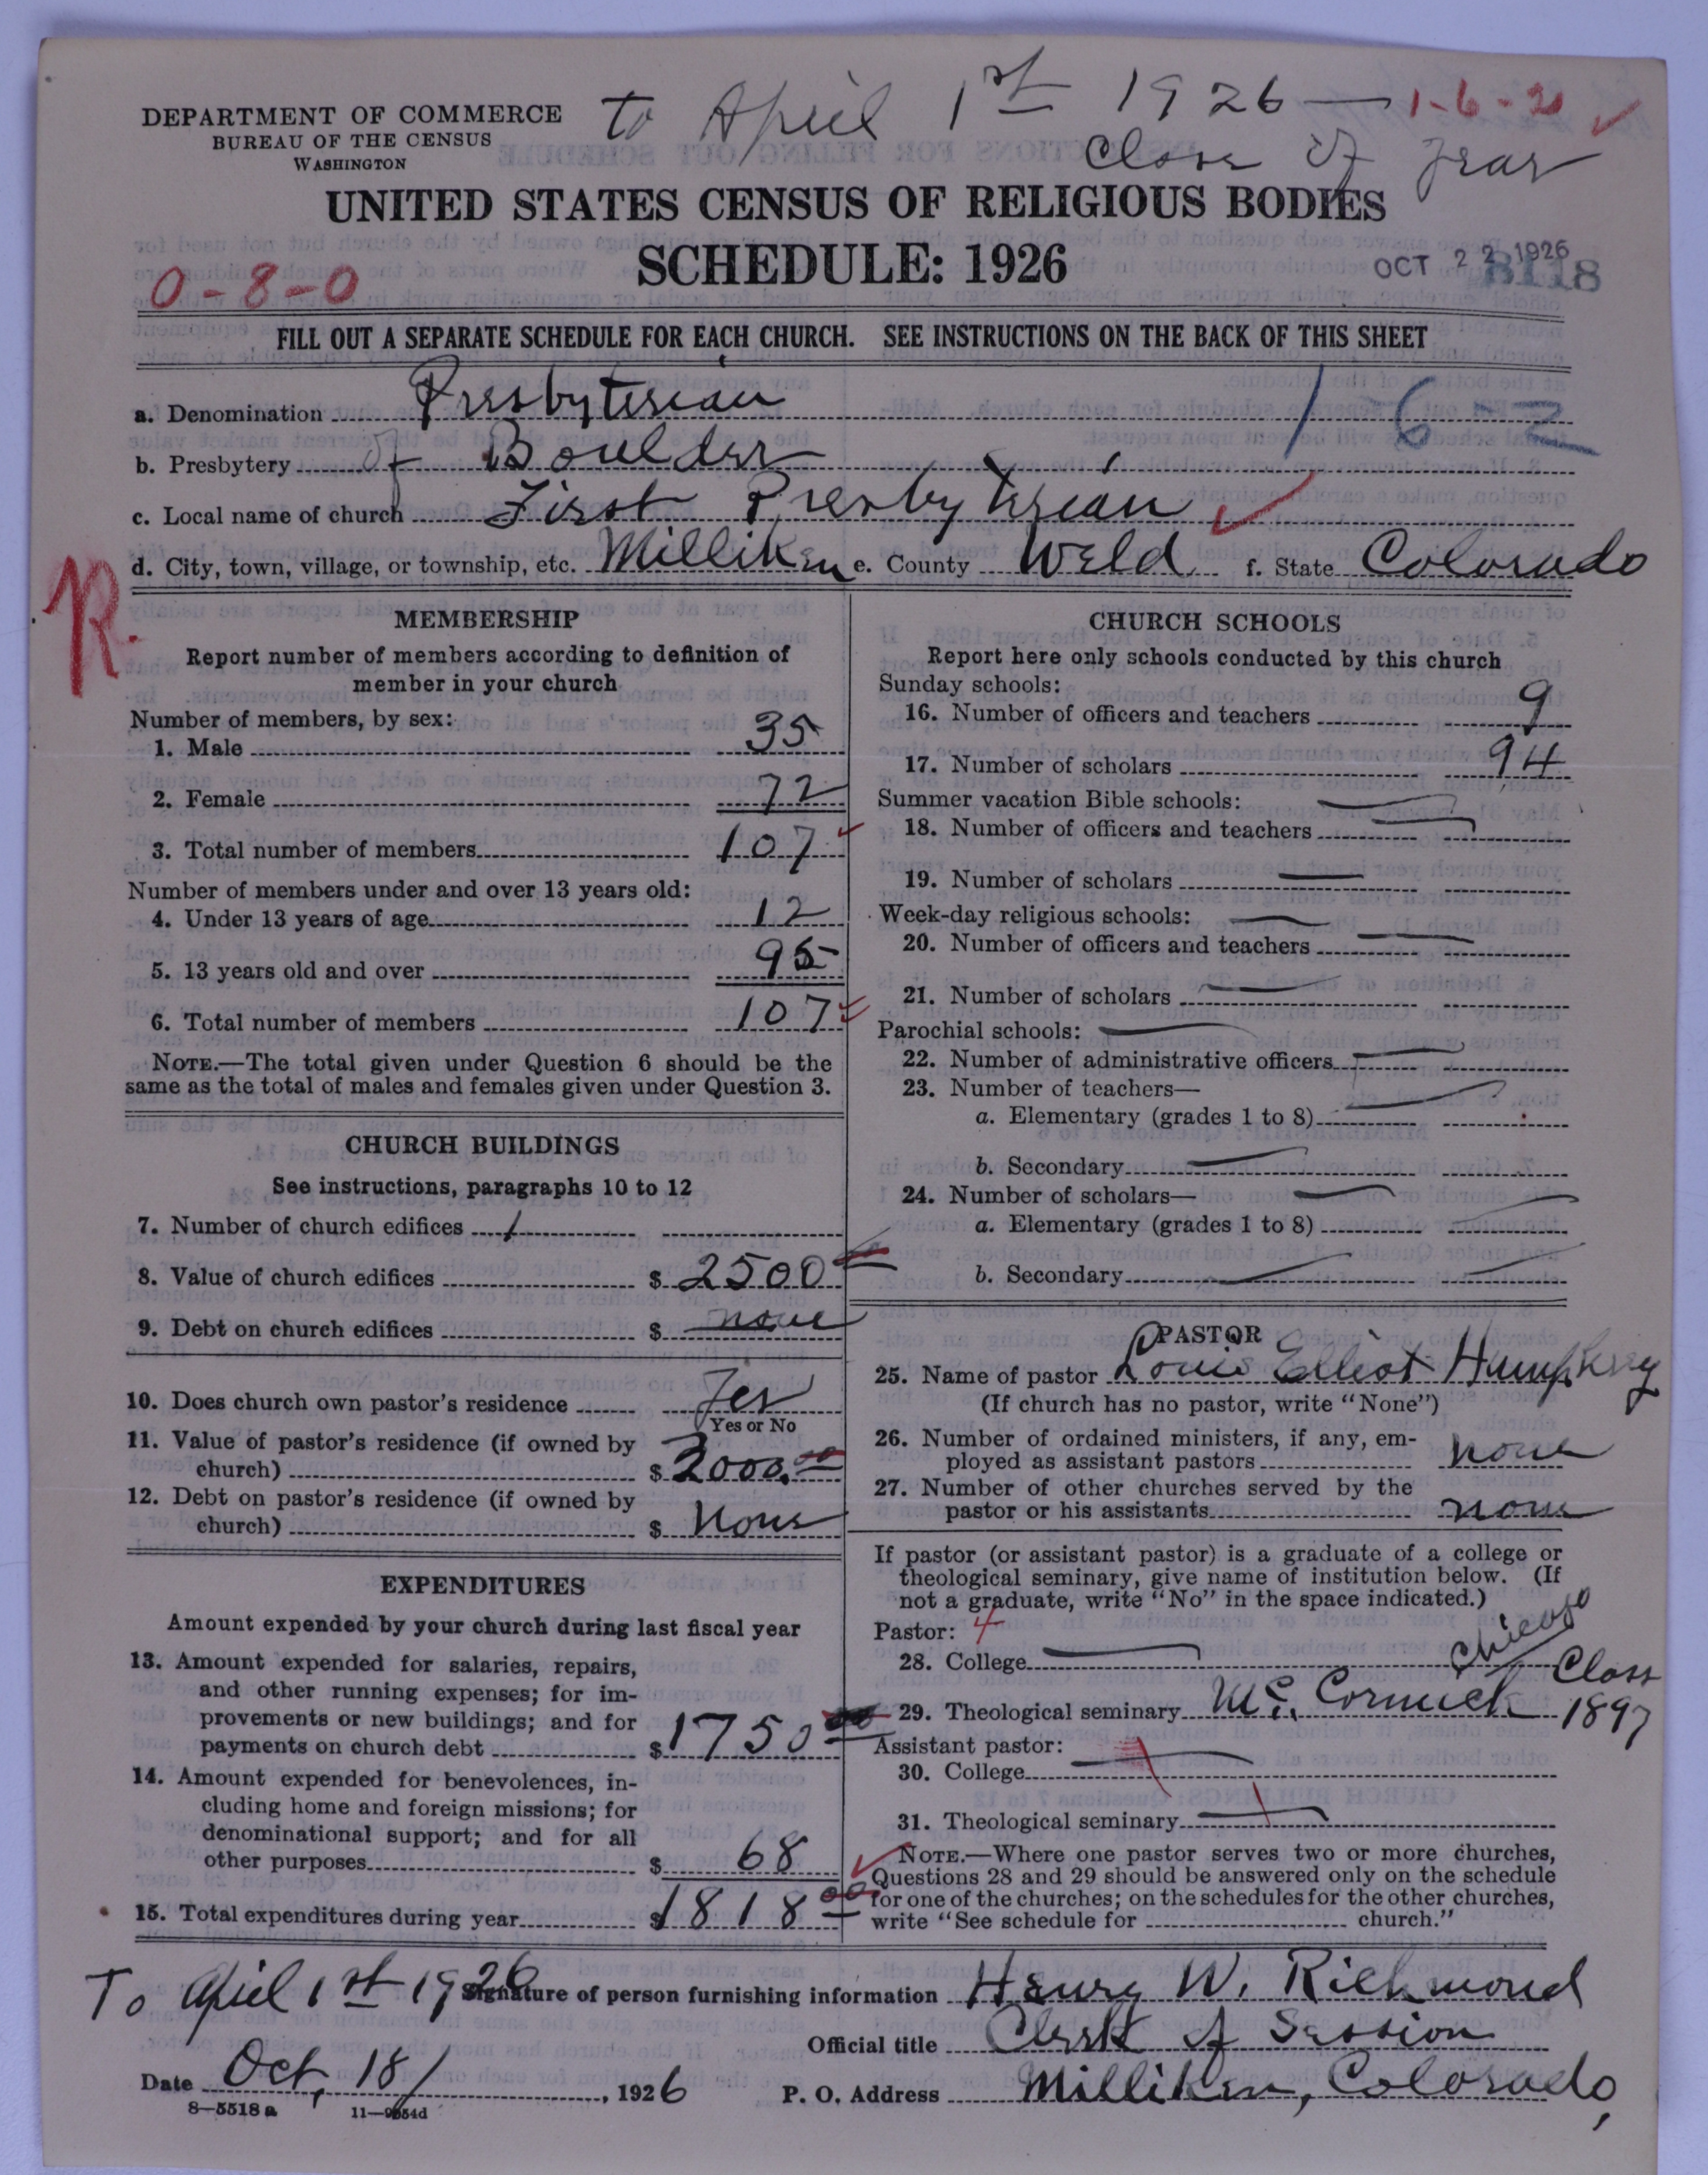 to April 1st 1926 — 1-6-21
Close of Year
DEPARTMENT OF COMMERCE
BUREAU OF THE CENSUS
WASHINGTON
UNITED STATES CENSUS OF RELIGIOUS BODIES
SCHEDULE: 1926
OCT 22 1926
8118
0-8-0
FILL OUT A SEPARATE SCHEDULE FOR EACH CHURCH. SEE INSTRUCTIONS ON THE BACK OF THIS SHEET
a. Denomination Presbyterian
1 6 - 2
b. Presbytery of Boulder
c. Local name of church First Presbyterian
d. City, town, village, or township, etc. Milliken e. County Weld f. State Colorado
R.
MEMBERSHIP
Report number of members according to definition of
member in your church
Number of members, by sex:
1. Male 35
2. Female 72
3. Total number of members 107
Number of members under and over 13 years old:
4. Under 13 years of age 12
5. 13 years old and over 95
6. Total number of members 107
NOTE.—The total given under Question 6 should be the
same as the total of males and females given under Question 3.
CHURCH BUILDINGS
See instructions, paragraphs 10 to 12
7. Number of church edifices 1
8. Value of church edifices $ 2500 00
9. Debt on church edifices $ none
10. Does church own pastor's residence Yes
Yes or No
11. Value of pastor's residence (if owned by
church) $ 2000.00
12. Debt on pastor's residence (if owned by
church) $ None
EXPENDITURES
Amount expended by your church during last fiscal year
13. Amount expended for salaries, repairs,
and other running expenses; for im-
provements or new buildings; and for
payments on church debt $ 1750 00
14. Amount expended for benevolences, in-
cluding home and foreign missions; for
denominational support; and for all
other purposes $ 68
15. Total expenditures during year $ 1818 00
CHURCH SCHOOLS
Report here only schools conducted by this church
Sunday schools:
16. Number of officers and teachers 9
17. Number of scholars 94
Summer vacation Bible schools:
18. Number of officers and teachers
19. Number of scholars
Week-day religious schools:
20. Number of officers and teachers
21. Number of scholars
Parochial schools:
22. Number of administrative officers
23. Number of teachers—
a. Elementary (grades 1 to 8)
b. Secondary
24. Number of scholars—
a. Elementary (grades 1 to 8)
b. Secondary
PASTOR
25. Name of pastor Louis Elliot Humphrey
(If church has no pastor, write "None")
26. Number of ordained ministers, if any, em-
ployed as assistant pastors none
27. Number of other churches served by the
pastor or his assistants none
If pastor (or assistant pastor) is a graduate of a college or
theological seminary, give name of institution below. (If
not a graduate, write "No" in the space indicated.)
Pastor: 4
28. College
Chicago
29. Theological seminary Mc. Cormick Class 1897
Assistant pastor:
30. College
31. Theological seminary
NOTE.—Where one pastor serves two or more churches,
Questions 28 and 29 should be answered only on the schedule
for one of the churches; on the schedules for the other churches,
write "See schedule for church."
To April 1st 1926
Signature of person furnishing information Henry W. Richmond
Official title Clerk of Session
Date Oct, 18/, 1926 P. O. Address Milliken, Colorado,
8—5518 a 11—9554d